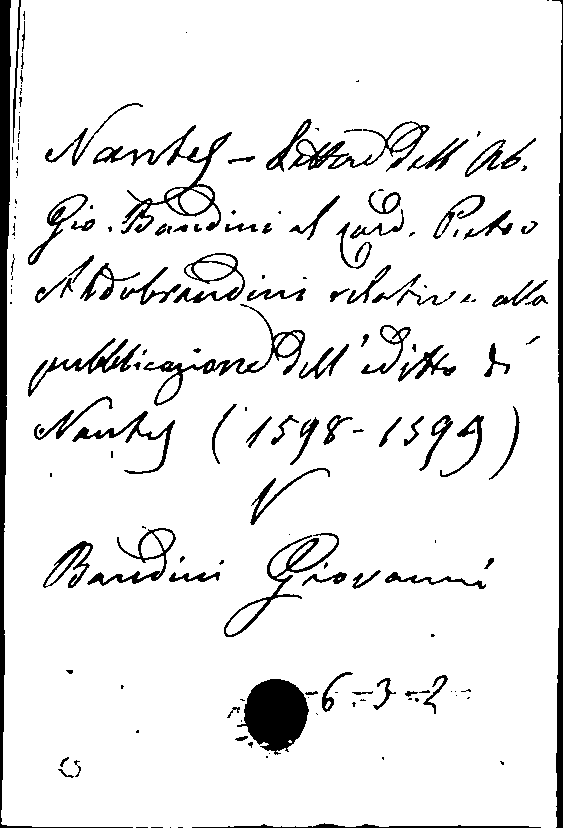 Nantes - Lettere dell' Ab.
Gio. Bandini al card. Pietro
Aldobrandini relative alla
pubblicazione dell' editto di
Nantes (1598-1599)
V
Bandini Giovanni
6-3-2